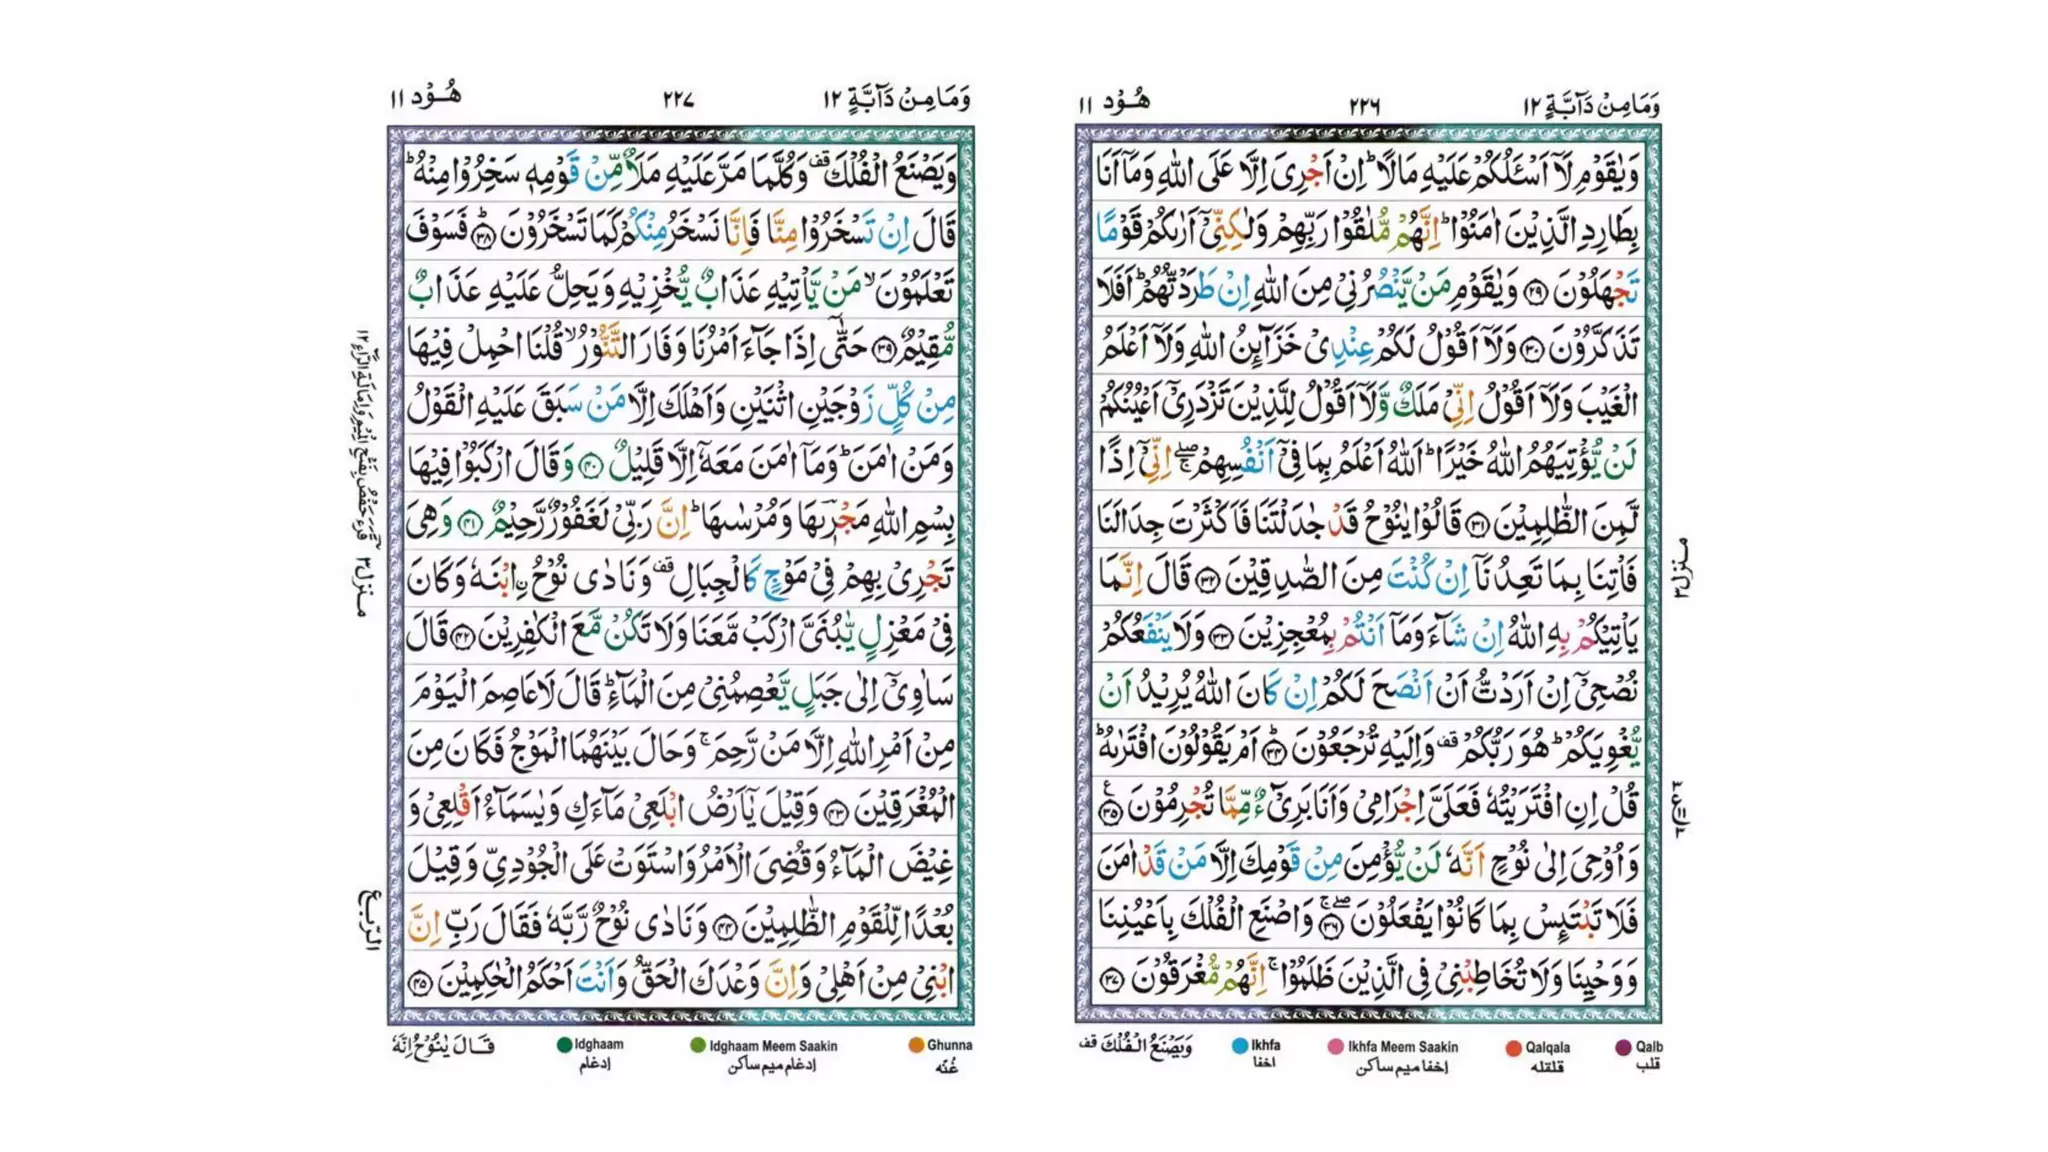 وَمَا مِنْ دَآبَّةٍ ١٢
٢٢٦
هُوْد ١١
وَيٰقَوْمِ لَاۤ اَسْـَٔلُكُمْ عَلَيْهِ مَالًا ؕ اِنْ اَجْرِىَ اِلَّا عَلَى اللّٰهِ وَمَاۤ اَنَا
بِطَارِدِ الَّذِيْنَ اٰمَنُوْا ؕ اِنَّهُمْ مُّلٰقُوْا رَبِّهِمْ وَلٰكِنِّىْۤ اَرٰىكُمْ قَوْمًا
تَجْهَلُوْنَ ﴿٢٩﴾ وَيٰقَوْمِ مَنْ يَّنْصُرُنِىْ مِنَ اللّٰهِ اِنْ طَرَدْتُّهُمْ ؕ اَفَلَا
تَذَكَّرُوْنَ ﴿٣٠﴾ وَلَاۤ اَقُوْلُ لَكُمْ عِنْدِىْ خَزَآئِنُ اللّٰهِ وَلَاۤ اَعْلَمُ
الْغَيْبَ وَلَاۤ اَقُوْلُ اِنِّىْ مَلَكٌ وَّلَاۤ اَقُوْلُ لِلَّذِيْنَ تَزْدَرِىْۤ اَعْيُنُكُمْ
لَنْ يُّؤْتِيَهُمُ اللّٰهُ خَيْرًا ؕ اَللّٰهُ اَعْلَمُ بِمَا فِىْۤ اَنْفُسِهِمْ ۖۚ اِنِّىْۤ اِذًا
لَّمِنَ الظّٰلِمِيْنَ ﴿٣١﴾ قَالُوْا يٰنُوْحُ قَدْ جٰدَلْتَنَا فَاَكْثَرْتَ جِدَالَنَا
فَاْتِنَا بِمَا تَعِدُنَاۤ اِنْ كُنْتَ مِنَ الصّٰدِقِيْنَ ﴿٣٢﴾ قَالَ اِنَّمَا
يَاْتِيْكُمْ بِهِ اللّٰهُ اِنْ شَآءَ وَمَاۤ اَنْتُمْ بِمُعْجِزِيْنَ ﴿٣٣﴾ وَلَا يَنْفَعُكُمْ
نُصْحِىْۤ اِنْ اَرَدْتُّ اَنْ اَنْصَحَ لَكُمْ اِنْ كَانَ اللّٰهُ يُرِيْدُ اَنْ
يُّغْوِيَكُمْ ؕ هُوَ رَبُّكُمْ قف وَاِلَيْهِ تُرْجَعُوْنَ ﴿٣٤﴾ اَمْ يَقُوْلُوْنَ افْتَرٰىهُ ؕ
قُلْ اِنِ افْتَرَيْتُهٗ فَعَلَىَّ اِجْرَامِىْ وَاَنَا بَرِىْٓءٌ مِّمَّا تُجْرِمُوْنَ ﴿٣٥﴾ ع
وَاُوْحِىَ اِلٰى نُوْحٍ اَنَّهٗ لَنْ يُّؤْمِنَ مِنْ قَوْمِكَ اِلَّا مَنْ قَدْ اٰمَنَ
فَلَا تَبْتَئِسْ بِمَا كَانُوْا يَفْعَلُوْنَ ﴿٣٦﴾ ۖۚ وَاصْنَعِ الْفُلْكَ بِاَعْيُنِنَا
وَوَحْيِنَا وَلَا تُخَاطِبْنِىْ فِى الَّذِيْنَ ظَلَمُوْا ۚ اِنَّهُمْ مُّغْرَقُوْنَ ﴿٣٧﴾
منزل ٣
وَيَصْنَعُ الْفُلْكَ قف
Ikhfa
اخفا
Ikhfa Meem Saakin
اخفا میم ساکن
Qalqala
قلقله
Qalb
قلب
وَمَا مِنْ دَآبَّةٍ ١٢
٢٢٧
هُوْد ١١
وَيَصْنَعُ الْفُلْكَ قف وَكُلَّمَا مَرَّ عَلَيْهِ مَلَاٌ مِّنْ قَوْمِهٖ سَخِرُوْا مِنْهُ ؕ
قَالَ اِنْ تَسْخَرُوْا مِنَّا فَاِنَّا نَسْخَرُ مِنْكُمْ كَمَا تَسْخَرُوْنَ ؕ ﴿٣٨﴾ فَسَوْفَ
تَعْلَمُوْنَ ۙ مَنْ يَّاْتِيْهِ عَذَابٌ يُّخْزِيْهِ وَيَحِلُّ عَلَيْهِ عَذَابٌ
مُّقِيْمٌ ﴿٣٩﴾ حَتّٰۤى اِذَا جَآءَ اَمْرُنَا وَفَارَ التَّنُّوْرُ ۙ قُلْنَا احْمِلْ فِيْهَا
مِنْ كُلٍّ زَوْجَيْنِ اثْنَيْنِ وَاَهْلَكَ اِلَّا مَنْ سَبَقَ عَلَيْهِ الْقَوْلُ
وَمَنْ اٰمَنَ ؕ وَمَاۤ اٰمَنَ مَعَهٗۤ اِلَّا قَلِيْلٌ ﴿٤٠﴾ وَقَالَ ارْكَبُوْا فِيْهَا
بِسْمِ اللّٰهِ مَجْرٖىهَا وَمُرْسٰىهَا ؕ اِنَّ رَبِّىْ لَغَفُوْرٌ رَّحِيْمٌ ﴿٤١﴾ وَهِىَ
تَجْرِىْ بِهِمْ فِىْ مَوْجٍ كَالْجِبَالِ قف وَنَادٰى نُوْحُ ۨابْنَهٗ وَكَانَ
فِىْ مَعْزِلٍ يّٰبُنَىَّ ارْكَبْ مَّعَنَا وَلَا تَكُنْ مَّعَ الْكٰفِرِيْنَ ﴿٤٢﴾ قَالَ
سَاٰوِىْۤ اِلٰى جَبَلٍ يَّعْصِمُنِىْ مِنَ الْمَآءِ ؕ قَالَ لَا عَاصِمَ الْيَوْمَ
مِنْ اَمْرِ اللّٰهِ اِلَّا مَنْ رَّحِمَ ۚ وَحَالَ بَيْنَهُمَا الْمَوْجُ فَكَانَ مِنَ
الْمُغْرَقِيْنَ ﴿٤٣﴾ وَقِيْلَ يٰۤاَرْضُ ابْلَعِىْ مَآءَكِ وَيٰسَمَآءُ اَقْلِعِىْ وَ
غِيْضَ الْمَآءُ وَقُضِىَ الْاَمْرُ وَاسْتَوَتْ عَلَى الْجُوْدِىِّ وَقِيْلَ
بُعْدًا لِّلْقَوْمِ الظّٰلِمِيْنَ ﴿٤٤﴾ وَنَادٰى نُوْحٌ رَّبَّهٗ فَقَالَ رَبِّ اِنَّ
ابْنِىْ مِنْ اَهْلِىْ وَاِنَّ وَعْدَكَ الْحَقُّ وَاَنْتَ اَحْكَمُ الْحٰكِمِيْنَ ﴿٤٥﴾
منزل ٣
الرّبع
قَالَ يٰنُوْحُ اِنَّهٗ
Idghaam
إدغام
Idghaam Meem Saakin
إدغام میم ساکن
Ghunna
غُنّه